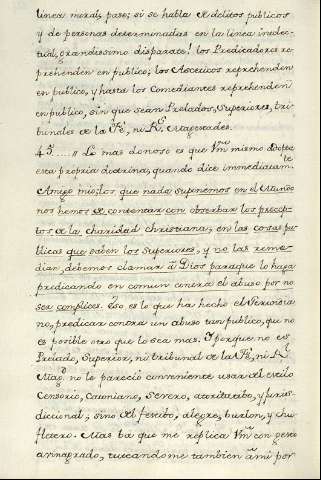 linea moral, pase; si se habla de delitos publicos
y de personas determinadas en la linea inelec-
tual, grandissimo disparate! los Predicadores re-
prehenden en publico; los Asceticos reprehenden
en publico, y hasta los Comediantes reprehenden
en publico, sin que sean Prelados, Superiores, tri-
bunales de la Fé, ni Rs. Magestades.
45..... Lo mas donoso es que Vmd mismo Dopta
esta propria doctrina, quando dice immediatamte.
Amigo mio, los que nada suponemos en el Mundo
nos hemos de contentar con obserbar los precep-
tos de la charidad christiana; en las cosas pu-
blicas que saben los Superiores, y no las reme-
dian, debemos clamar â Dios para que lo haga
predicando en comun contra el abuso por no
ser complices. Eso es lo que ha hecho el
no, predicar contra un abuso tan publico, que no
es posible otro que lo sea mas. I porque no es
Prelado, Superior, ni tribunal de la Fé, ni Rl.
Magd. no le pareció conveniente usar del estilo
Censorio, Catoniano, Severo, autoritatibo, y juris-
diccional; sino del festibo, alegre, burlon, y chu-
fletero. Mas ba que me replica Vmd con gesto
avinagrado, tambien â mi por